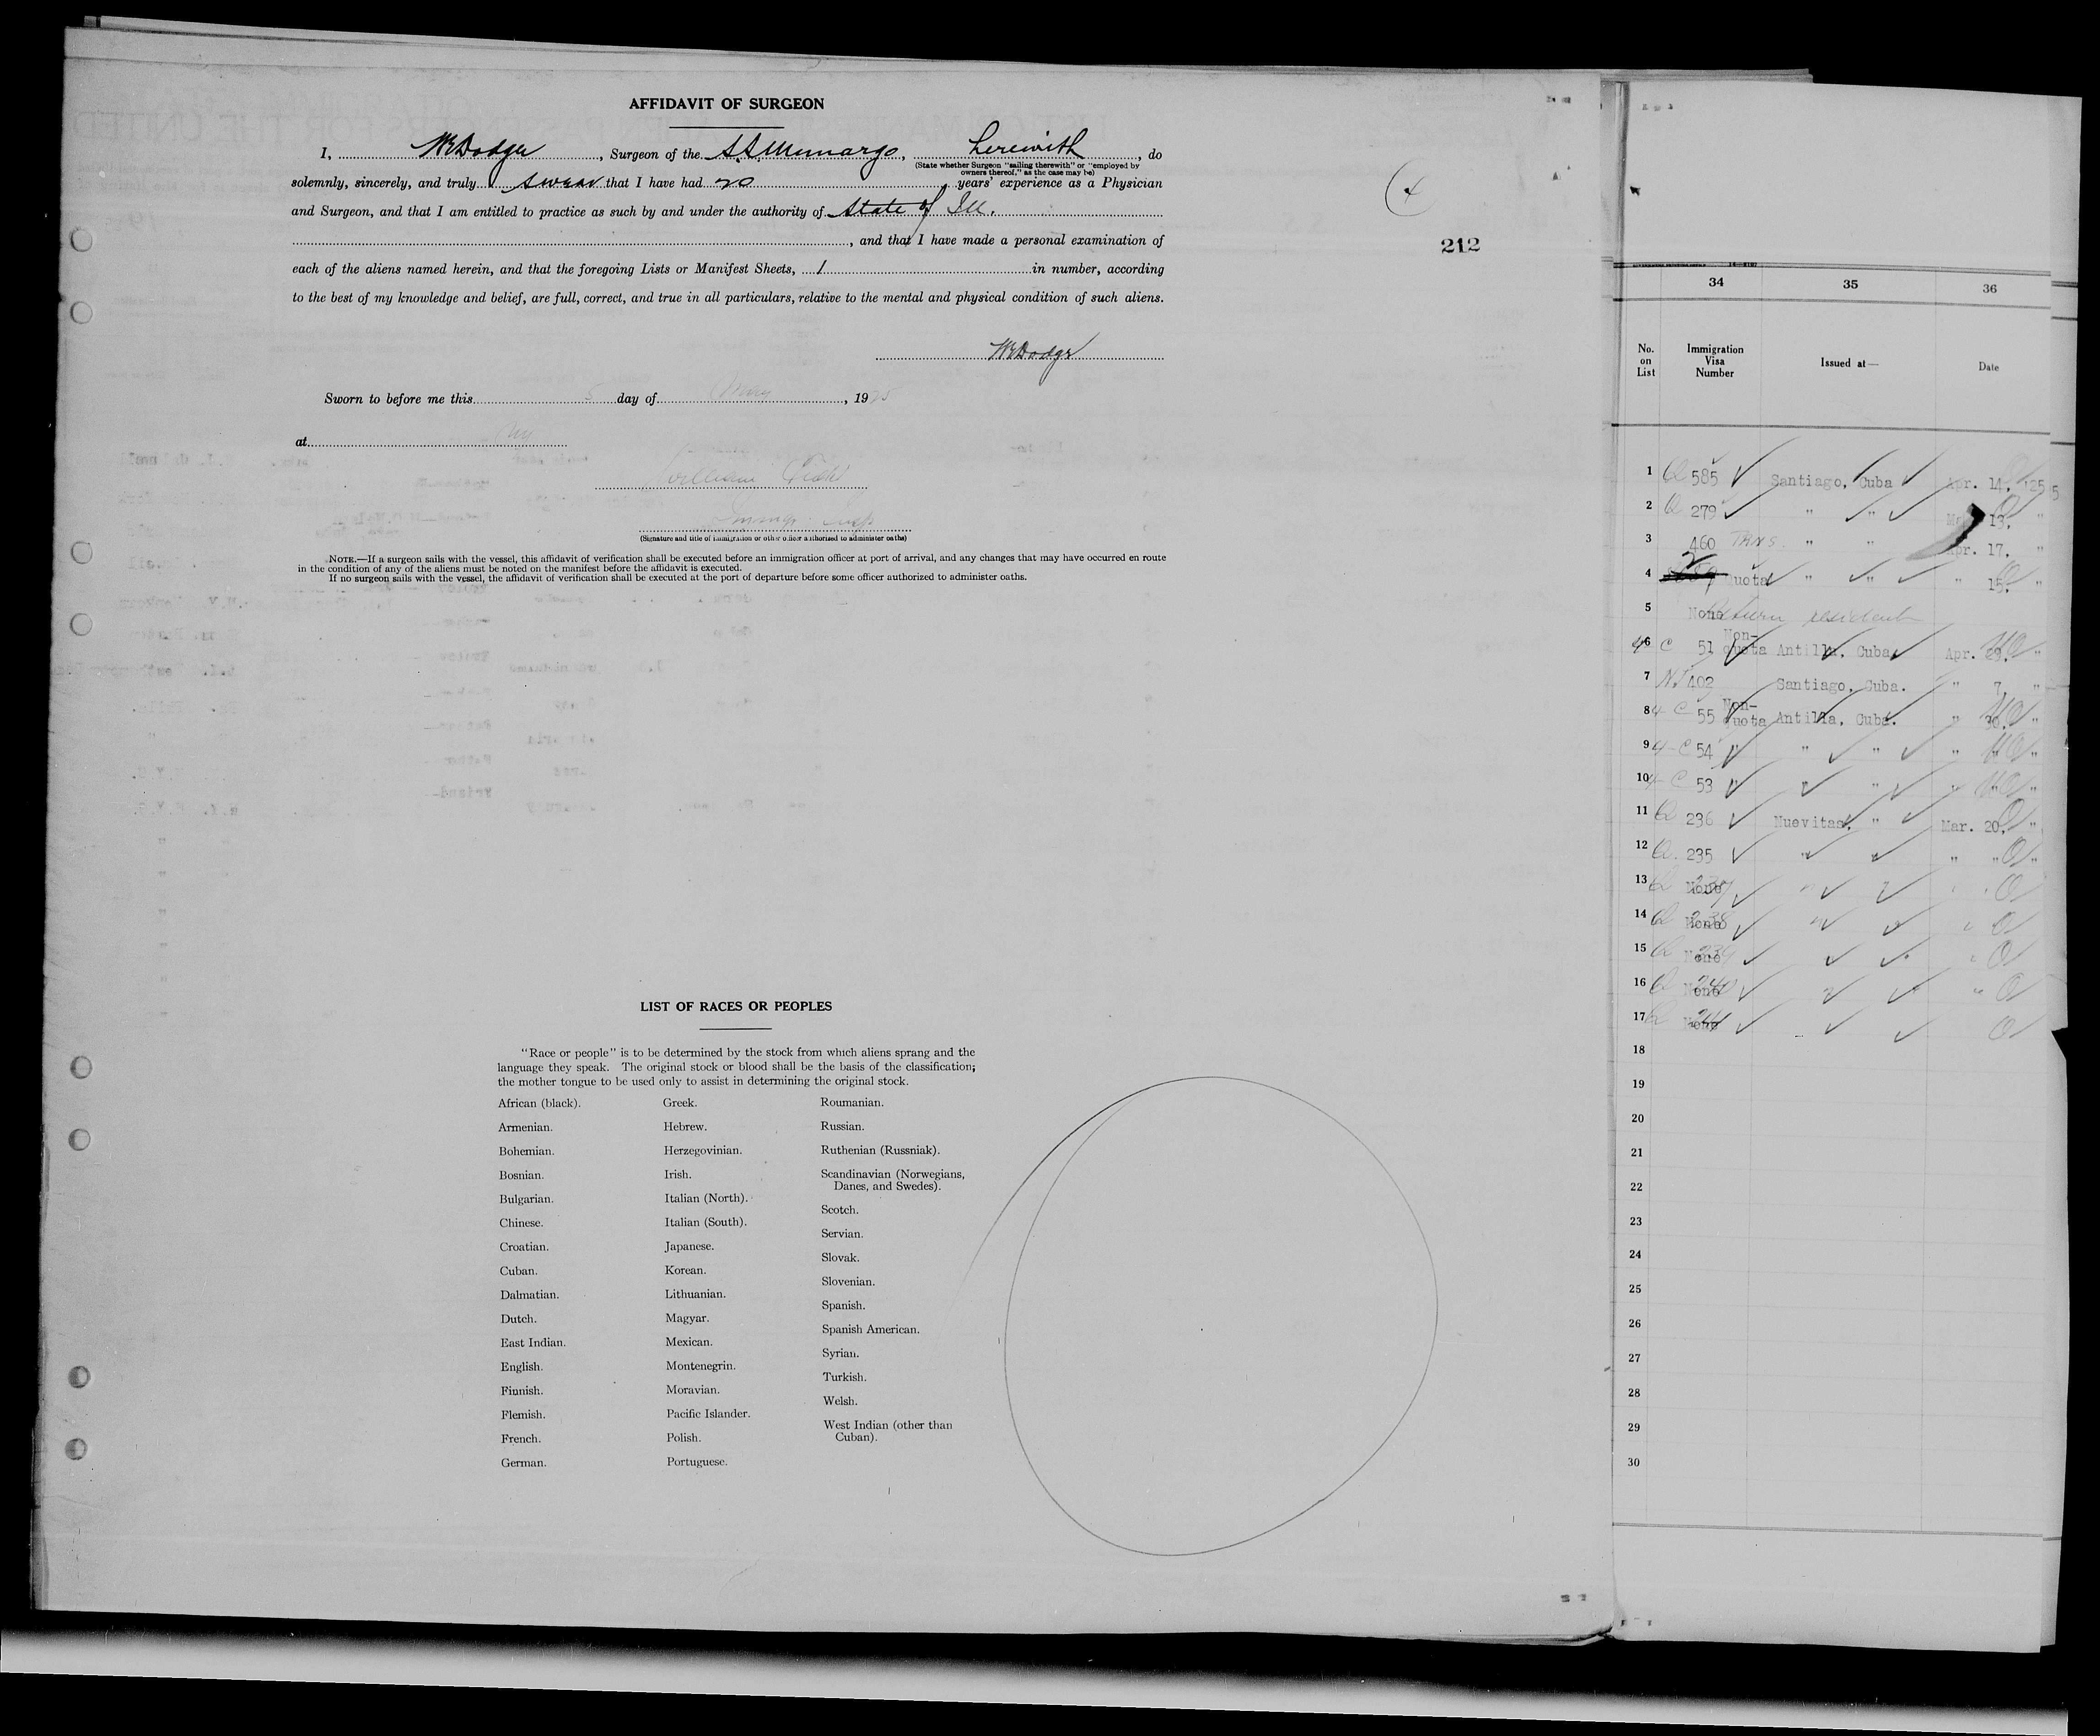 AFFIDAVIT OF SURGEON
I, WDodge, Surgeon of the S.S. Munargo, herewith, do
(State whether Surgeon "sailing therewith" or "employed by
owners thereof," as the case may be)
solemnly, sincerely, and truly swear that I have had 20 years' experience as a Physician
and Surgeon, and that I am entitled to practice as such by and under the authority of State of Ill.
, and that I have made a personal examination of
each of the aliens named herein, and that the foregoing Lists or Manifest Sheets, 1 in number, according
to the best of my knowledge and belief, are full, correct, and true in all particulars, relative to the mental and physical condition of such aliens.
WDodge
Sworn to before me this 5 day of May, 1925
at NY
William
Immig Insp
(Signature and title of immigration or other officer authorized to administer oaths)
NOTE.—If a surgeon sails with the vessel, this affidavit of verification shall be executed before an immigration officer at port of arrival, and any changes that may have occurred en route
in the condition of any of the aliens must be noted on the manifest before the affidavit is executed.
If no surgeon sails with the vessel, the affidavit of verification shall be executed at the port of departure before some officer authorized to administer oaths.
212
LIST OF RACES OR PEOPLES
"Race or people" is to be determined by the stock from which aliens sprang and the
language they speak. The original stock or blood shall be the basis of the classification;
the mother tongue to be used only to assist in determining the original stock.
African (black).
Armenian.
Bohemian.
Bosnian.
Bulgarian.
Chinese.
Croatian.
Cuban.
Dalmatian.
Dutch.
East Indian.
English.
Finnish.
Flemish.
French.
German.
Greek.
Hebrew.
Herzegovinian.
Irish.
Italian (North).
Italian (South).
Japanese.
Korean.
Lithuanian.
Magyar.
Mexican.
Montenegrin.
Moravian.
Pacific Islander.
Polish.
Portuguese.
Roumanian.
Russian.
Ruthenian (Russniak).
Scandinavian (Norwegians,
Danes, and Swedes).
Scotch.
Servian.
Slovak.
Slovenian.
Spanish.
Spanish American.
Syrian.
Turkish.
Welsh.
West Indian (other than
Cuban).
34 35 36
No. on List Immigration Visa Number Issued at— Date
1 Q 585 Santiago, Cuba Apr. 14, '25
2 Q 279 " " 13, "
3 460 TRNS. " " Apr. 17, "
4 Quota " " " 15, "
5 None Return resident
6 4 C 51 Non-quota Antilla, Cuba. Apr. 29, "
7 402 Santiago, Cuba. " 7, "
8 4 C 55 Non-quota Antilla, Cuba. " 30, "
9 4 C 54 " " " " " "
10 4 C 53 " " " " " "
11 Q 236 Nuevitas, " Mar. 20, "
12 Q 235 " " " " "
13 Q None
14 Q None 238
15 Q None 239
16 Q None 240
17 Q None 241
18
19
20
21
22
23
24
25
26
27
28
29
30